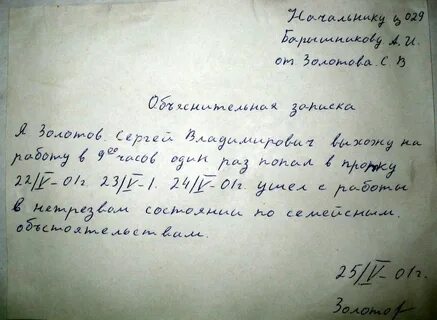 Начальнику ц 029
Барышникову А. И.
от Золотова. С В
Объяснительная записка
Я Золотов Сергей Владимирович выхожу на
работу в 9ее часов один раз попал в
22/V-01г. 23/V-1. 24/V-01г. ушел с работы
в нетрезвом состоянии по семейным
обьстоятельствам.
25/V-01г.
Золотов